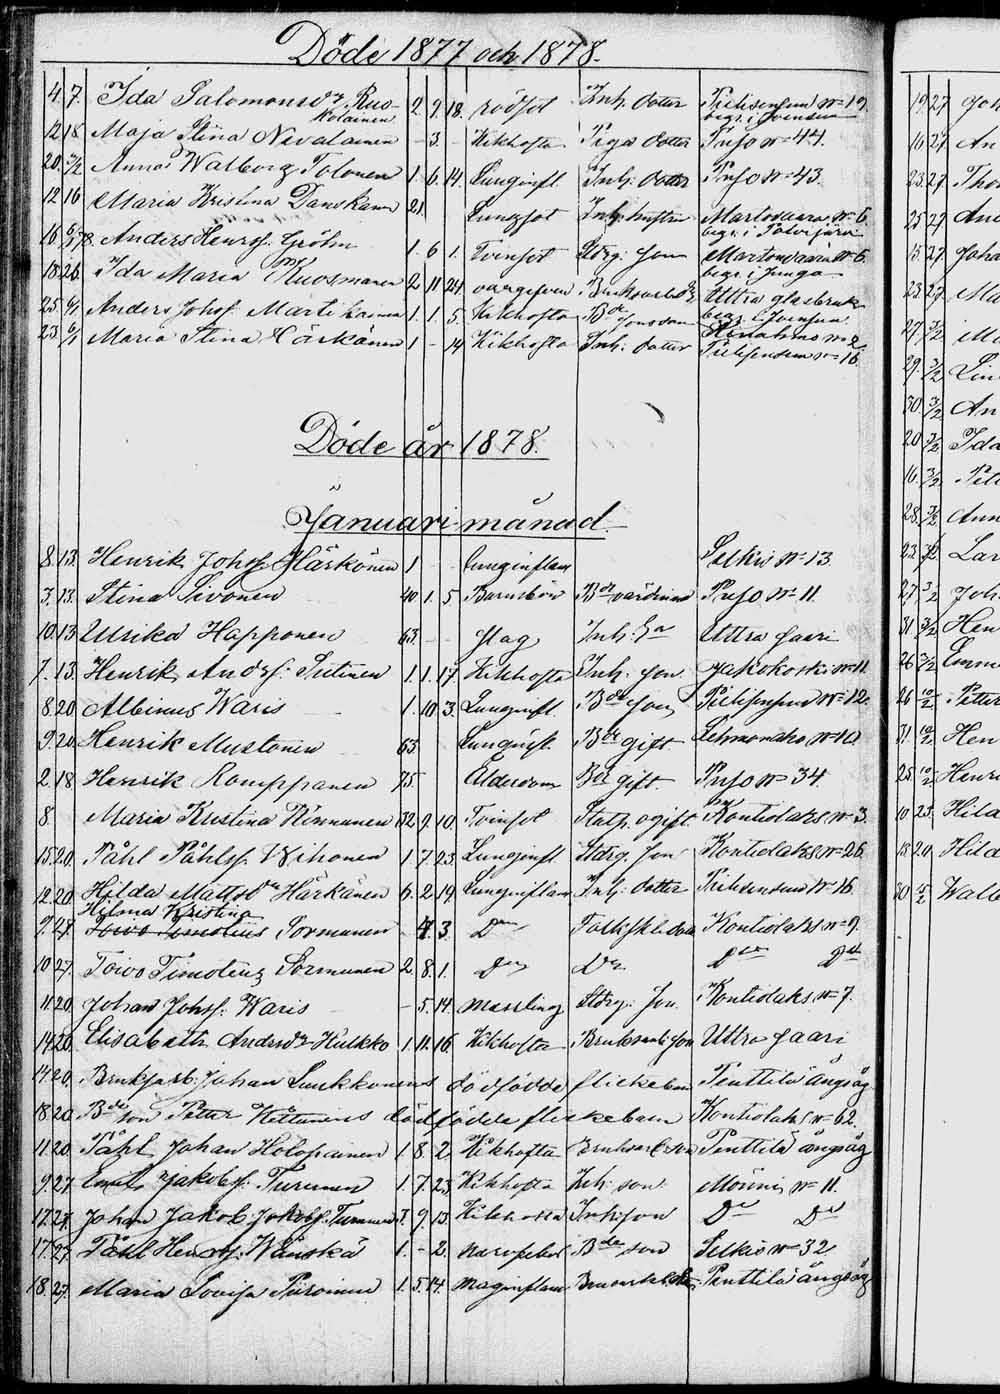 Döde 1877 och 1878.
4. 7. Ida Salomonsdr Ruo- 2 9. 18. rödsot Inh. dotter Pielisensuu No 19.
kolainen begr. i Joensuu
12 18 Maja Stina Nevalainen - 3. - Kikhosta Pigas dotter Puso No 44.
20. Anna Walborg Tolonen 1. 6. 14. Lunginfl. Inh: dotter Puso No 43.
12 16 Maria Kristina Danskanen 21. Lungsot Inh: hustru Martovaara No 6.
begr. i Polvijärvi
16 Anders Henrsf. Gröhn 1. 6 1. Tvinsot Stdrg: son Martovaara No 6.
begr. i Junga
18 26. Ida Maria Kuosmanen 2 11 24. Bruksarb. Uttra glasbruk
begr. i Joensuu.
25. Anders Johsf. Martikainen 1. 1. 5. Kikhosta Bde sonson
23 Maria Stina Härkönen 1 - 14 Kikhosta Inh: dotter Pielisensuu No 16.
Döde år 1878.
Januari månad.
8. 13. Henrik Johsf. Härkönen 1 Lunginflam Selkie No 13.
3. 13. Stina Sivonen 40 1. 5 Barnsbörd Bdevärdinna Puso No 11.
10. 13 Ulrika Happonen 63 - - slag Inh: Ea Uttra saari
7. 13. Henrik Andsf. Sutinen 1. 1. 17. Kikhosta Inh. son. Jakokoski No 11.
8. 20 Albinus Waris 1. 10 3. Lunginfl. Bde son Pielisensuu No 12.
9. 20 Henrik Mustonen 65 Lunginfl. Bde gift Lehmonaho No 10
2 18 Henrik Romppanen 75. Ålderdom Bde gift. Puso No 34.
8 Maria Kristina Kinnunen 32 9. 10 Tvinsot Statp. ogift. Kontiolaks No 3.
15. 20. Påhl Påhlsf. Wihonen 1 7. 23. Lunginfl. Stdrg. son Kontiolaks No 26.
12 20 Hilda Mattsdr Härkönen 6. 2 19. Lunginflam Inh: dotter Pielisensuu No 16.
Hilma Kristina
9. 27. Toivo Timoteus Sormunen - 4. 3. Do Kontiolaks No 9.
10 27. Toivo Timoteus Sormunen 2. 8. 1. Do Do Do Do
11. 20. Johan Johsf. Waris - 5. 14. massling Stdrg: son Kontiolaks No 7.
14 20. Elisabeth Andrsdr Hukko 1. 11. 16. Kikhosta Bruksarb. son Uttra saari
14. 20. Bruksarb. Johan Suukkonens dödfödde flickebarn Penttilä ångsåg
18 20. Bde son Petter Kettunens dödfödde flickebarn Kontiolaks No 62.
11 20. Påhl Johan Holopainen 1. 8. 2. Kikhosta Bruksarb. son Penttilä ångsåg
9. 27. Emil Jakobsf. Turunen 1. 7. 23. Kikhosta Inh: son Mönni No 11.
17. 27. Johan Jakob Jakobsf. Turunen 3. 9. 13. Kikhosta Inh. son Do Do
17. 27. Påhl Henrsf. Wänskä 1. - 2. Bde son Selkie No 32
18. 27. Maria Lovisa Piiroinen 1. 5. 14. Maginflam Penttilä ångsåg
19 27.
16 27. An
23. 27. Tho
25 27. And
15. 27. Joha
23. 27. Ma
27. Ma
29. Lin
30. An
20 Ida
16. Pet
28. Ann
23. Lar
27. Joh.
31. Hen
26 Emm
26 Petter
31. Hen
25 Henri
10 23. Hild
13. 20. Hild
30 Walb